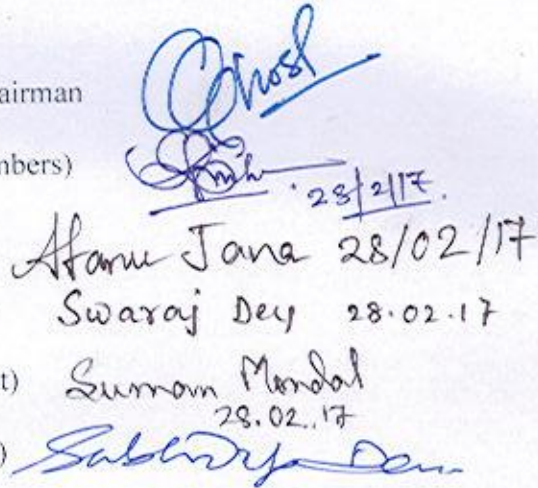 airman Ghosh
nbers)
28/2/17.
Atanu Jana 28/02/17
Swaraj Dey 28.02.17
t) Suman Mondal
28.02.17
)